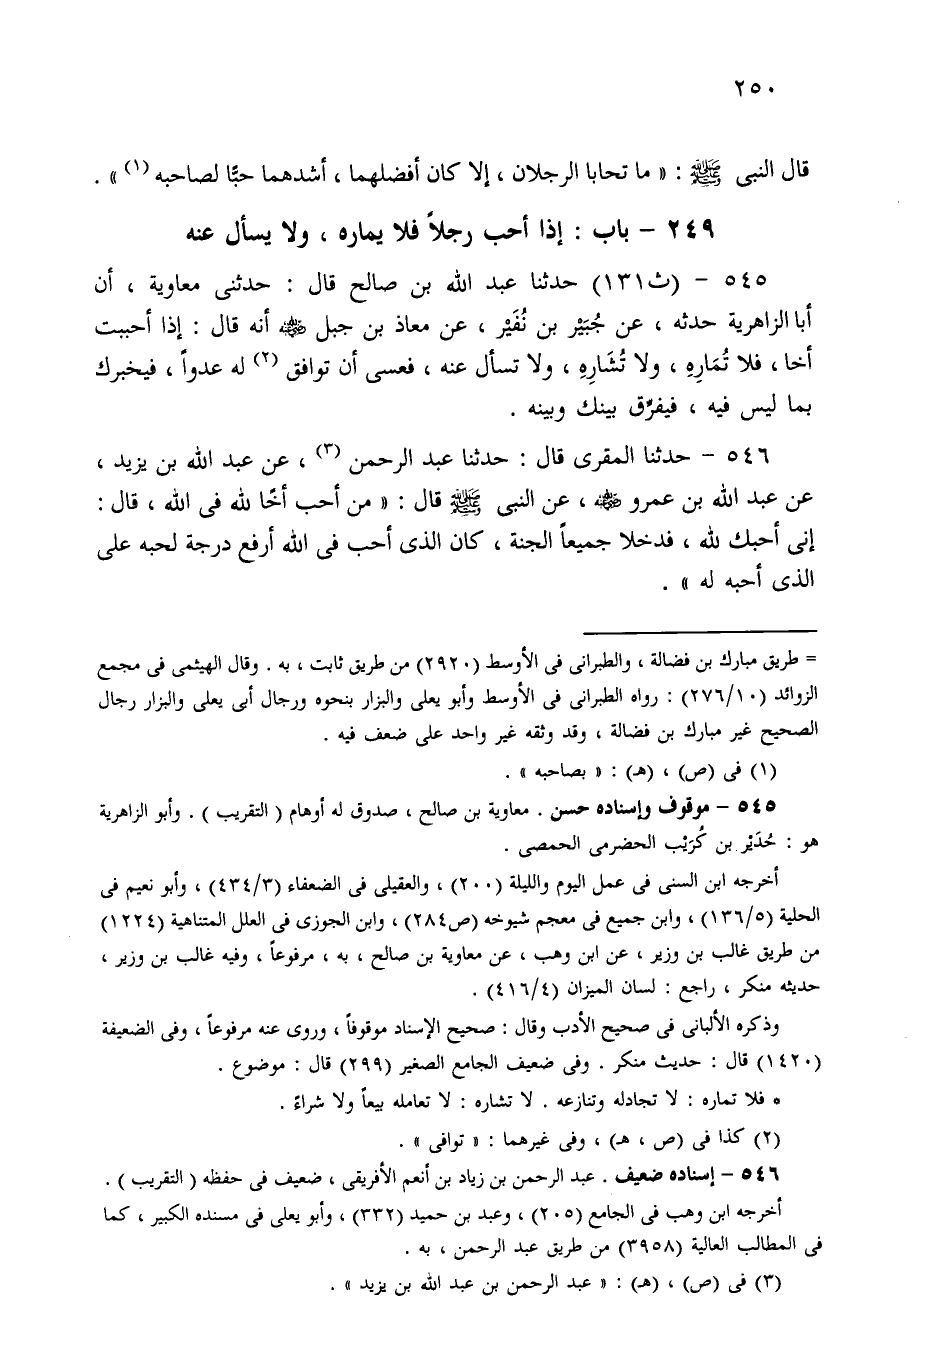 ٢٥٠
قال النبى ﷺ : « ما تحابا الرجلان ، إلا كان أفضلهما ، أشدهما حبًّا لصاحبه (١) » .
٢٤٩ – باب : إذا أحب رجلاً فلا يماره ، ولا يسأل عنه
٥٤٥ – (ث١٣١) حدثنا عبد الله بن صالح قال : حدثنى معاوية ، أن
أبا الزاهرية حدثه ، عن جُبَيْر بن نُفَيْر ، عن معاذ بن جبل رضي الله عنه أنه قال : إذا أحببت
أخا ، فلا تُمَارِهِ ، ولا تُشَارِهِ ، ولا تسأل عنه ، فعسى أن توافق (٢) له عدواً ، فيخبرك
بما ليس فيه ، فيفرِّق بينك وبينه .
٥٤٦ – حدثنا المقرى قال : حدثنا عبد الرحمن (٣) ، عن عبد الله بن يزيد ،
عن عبد الله بن عمرو رضي الله عنه ، عن النبى ﷺ قال : « من أحب أخًا لله فى الله ، قال :
إنى أحبك لله ، فدخلا جميعاً الجنة ، كان الذى أحب فى الله أرفع درجة لحبه على
الذى أحبه له » .
= طريق مبارك بن فضالة ، والطبرانى فى الأوسط (٢٩٢٠) من طريق ثابت ، به . وقال الهيثمى فى مجمع
الزوائد (٢٧٦/١٠) : رواه الطبرانى فى الأوسط وأبو يعلى والبزار بنحوه ورجال أبى يعلى والبزار رجال
الصحيح غير مبارك بن فضالة ، وقد وثقه غير واحد على ضعف فيه .
(١) فى (ص) ، (هـ) : « بصاحبه » .
٥٤٥ – موقوف وإسناده حسن . معاوية بن صالح ، صدوق له أوهام ( التقريب ) . وأبو الزاهرية
هو : حُدَيْر بن كُرَيْب الحضرمى الحمصى .
أخرجه ابن السنى فى عمل اليوم والليلة (٢٠٠) ، والعقيلى فى الضعفاء (٤٣٤/٣) ، وأبو نعيم فى
الحلية (١٣٦/٥) ، وابن جميع فى معجم شيوخه (ص٢٨٤) ، وابن الجوزى فى العلل المتناهية (١٢٢٤)
من طريق غالب بن وزير ، عن ابن وهب ، عن معاوية بن صالح ، به ، مرفوعاً ، وفيه غالب بن وزير ،
حديثه منكر ، راجع : لسان الميزان (٤١٦/٤) .
وذكره الألبانى فى صحيح الأدب وقال : صحيح الإسناد موقوفاً ، وروى عنه مرفوعاً ، وفى الضعيفة
(١٤٢٠) قال : حديث منكر . وفى ضعيف الجامع الصغير (٢٩٩) قال : موضوع .
• فلا تماره : لا تجادله وتنازعه . لا تشاره : لا تعامله بيعاً ولا شراءً .
(٢) كذا فى (ص ، هـ) ، وفى غيرهما : « توافى » .
٥٤٦ – إسناده ضعيف . عبد الرحمن بن زياد بن أنعم الأفريقى ، ضعيف فى حفظه ( التقريب ) .
أخرجه ابن وهب فى الجامع (٢٠٥) ، وعبد بن حميد (٣٣٢) ، وأبو يعلى فى مسنده الكبير ، كما
فى المطالب العالية (٣٩٥٨) من طريق عبد الرحمن ، به .
(٣) فى (ص) ، (هـ) : « عبد الرحمن بن عبد الله بن يزيد » .